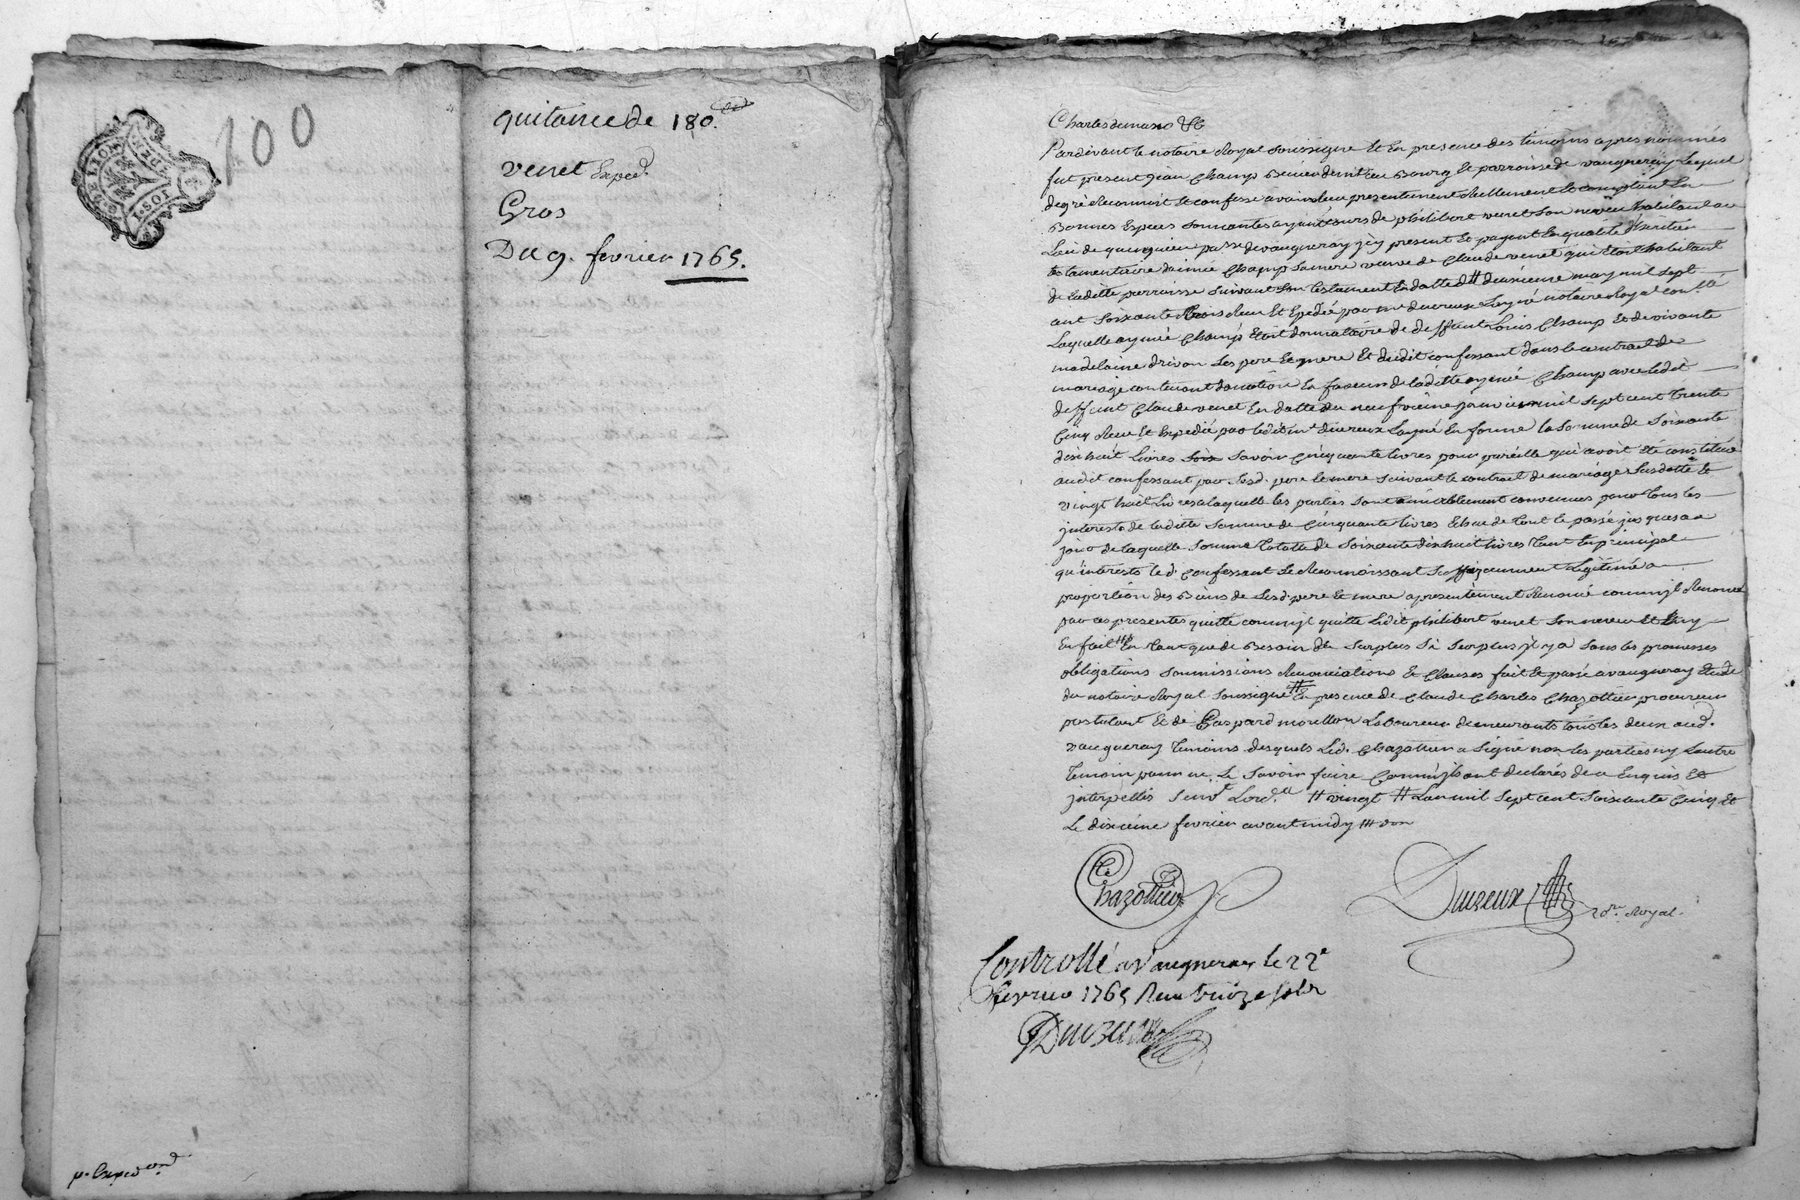 100
quitance de 180.
venet Exped.
Gros
Du 9. fevrier 1765.
p. Exped
Charles demaso &c
Pardevant le notaire Royal soussigné et En presence des temoins apres nommés
fut present jean Champ demeurant au Bourg et parroisse de vaugneray Lequel
de gré Reconnoit et confesse avoir Reçu presentement Reellement et comptant En
Bonnes Especes sonnantes ayant cours de philibert venet son neveu habitant au
Lieu de passe de vaugneray icy present et payant En qualité d'heritier
testamentaire d'aimée Champ sa mere veuve de Claude venet qui Etoit habitant
de laditte parroisse suivant son testament En datte du deuxieme may mil sept
cent soixante trois Reçu Et Expedié par me duvreux Layné notaire Royal
Laquelle aymée Champ Etoit donnataire de deffunt Louis Champ Et de vivante
madelaine drivon ses pere Et mere Et dudit confessant dans le contrat de
mariage contenant donnation En faveur de laditte aymée Champ avec ledit
deffunt Claude venet En datte du neufvieme janvier mil sept cent trente
Cinq Reçu Et Expedié par ledit me duvreux Layné En forme la somme de soixante
dixhuit livres savoir Cinquante livres pour pareille qui avoit Eté constituée
audit confessant par sesd. pere et mere suivant le contrat de mariage susdatté Et
vingt huit Livres a laquelle les parties sont amiablement convenues pour tous les
interests de laditte somme de Cinquante livres Echue de tout le passé jusques a ce
jour de laquelle somme totalle de soixante dixhuit livres tant En principal
qu'interests le d. confessant se Reconnoissant suffizamment Legitimé a
proportion des Biens de sesd. pere Et mere a presentement Renoncé comm'jl Renonce
par ces presentes quitte comm'jl quitte ledit philibert venet son neveu Et
En fait En tant que de Besoin du surplus si surplus jl y a sous les promesses
obligations soumissions Renonciations Et Clauses fait Et passé a vaugneray Etude
du notaire Royal soussigné En presence de Claude Charles Chazottier procureur
postulant Et de Gaspard morellon Laboureur demeurants tous les deux aud.
vaugneray temoins desquels Led. Chazottier a signé non les parties ny Lautre
temoin pour ne le savoir faire Comm'jls ont declarés de ce Enquis Et
interpellés suivt Lord.ce # vingt # Lan mil sept cent soixante Cinq Et
Le dixieme fevrier avant midy
Chazottier
Duvreux
Royal
Controllé a Vaugneray le 22e
fevrier 1765 Reçu treize sols
Duvreux